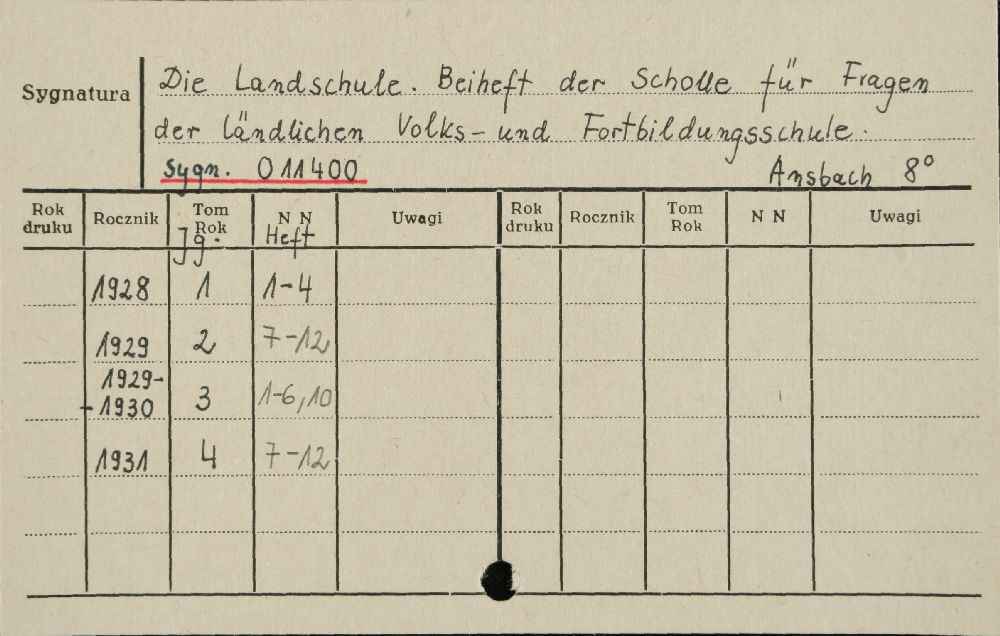 Sygnatura
Die Landschule. Beiheft der Scholle für Fragen
der ländlichen Volks- und Fortbildungsschule.
Sygn. 011400 Ansbach 8°
Rok druku Rocznik Tom Rok N N Uwagi Rok druku Rocznik Tom Rok N N Uwagi
Jg. Heft
1928 1 1-4
1929 2 7-12
1929-
-1930 3 1-6, 10
1931 4 7-12